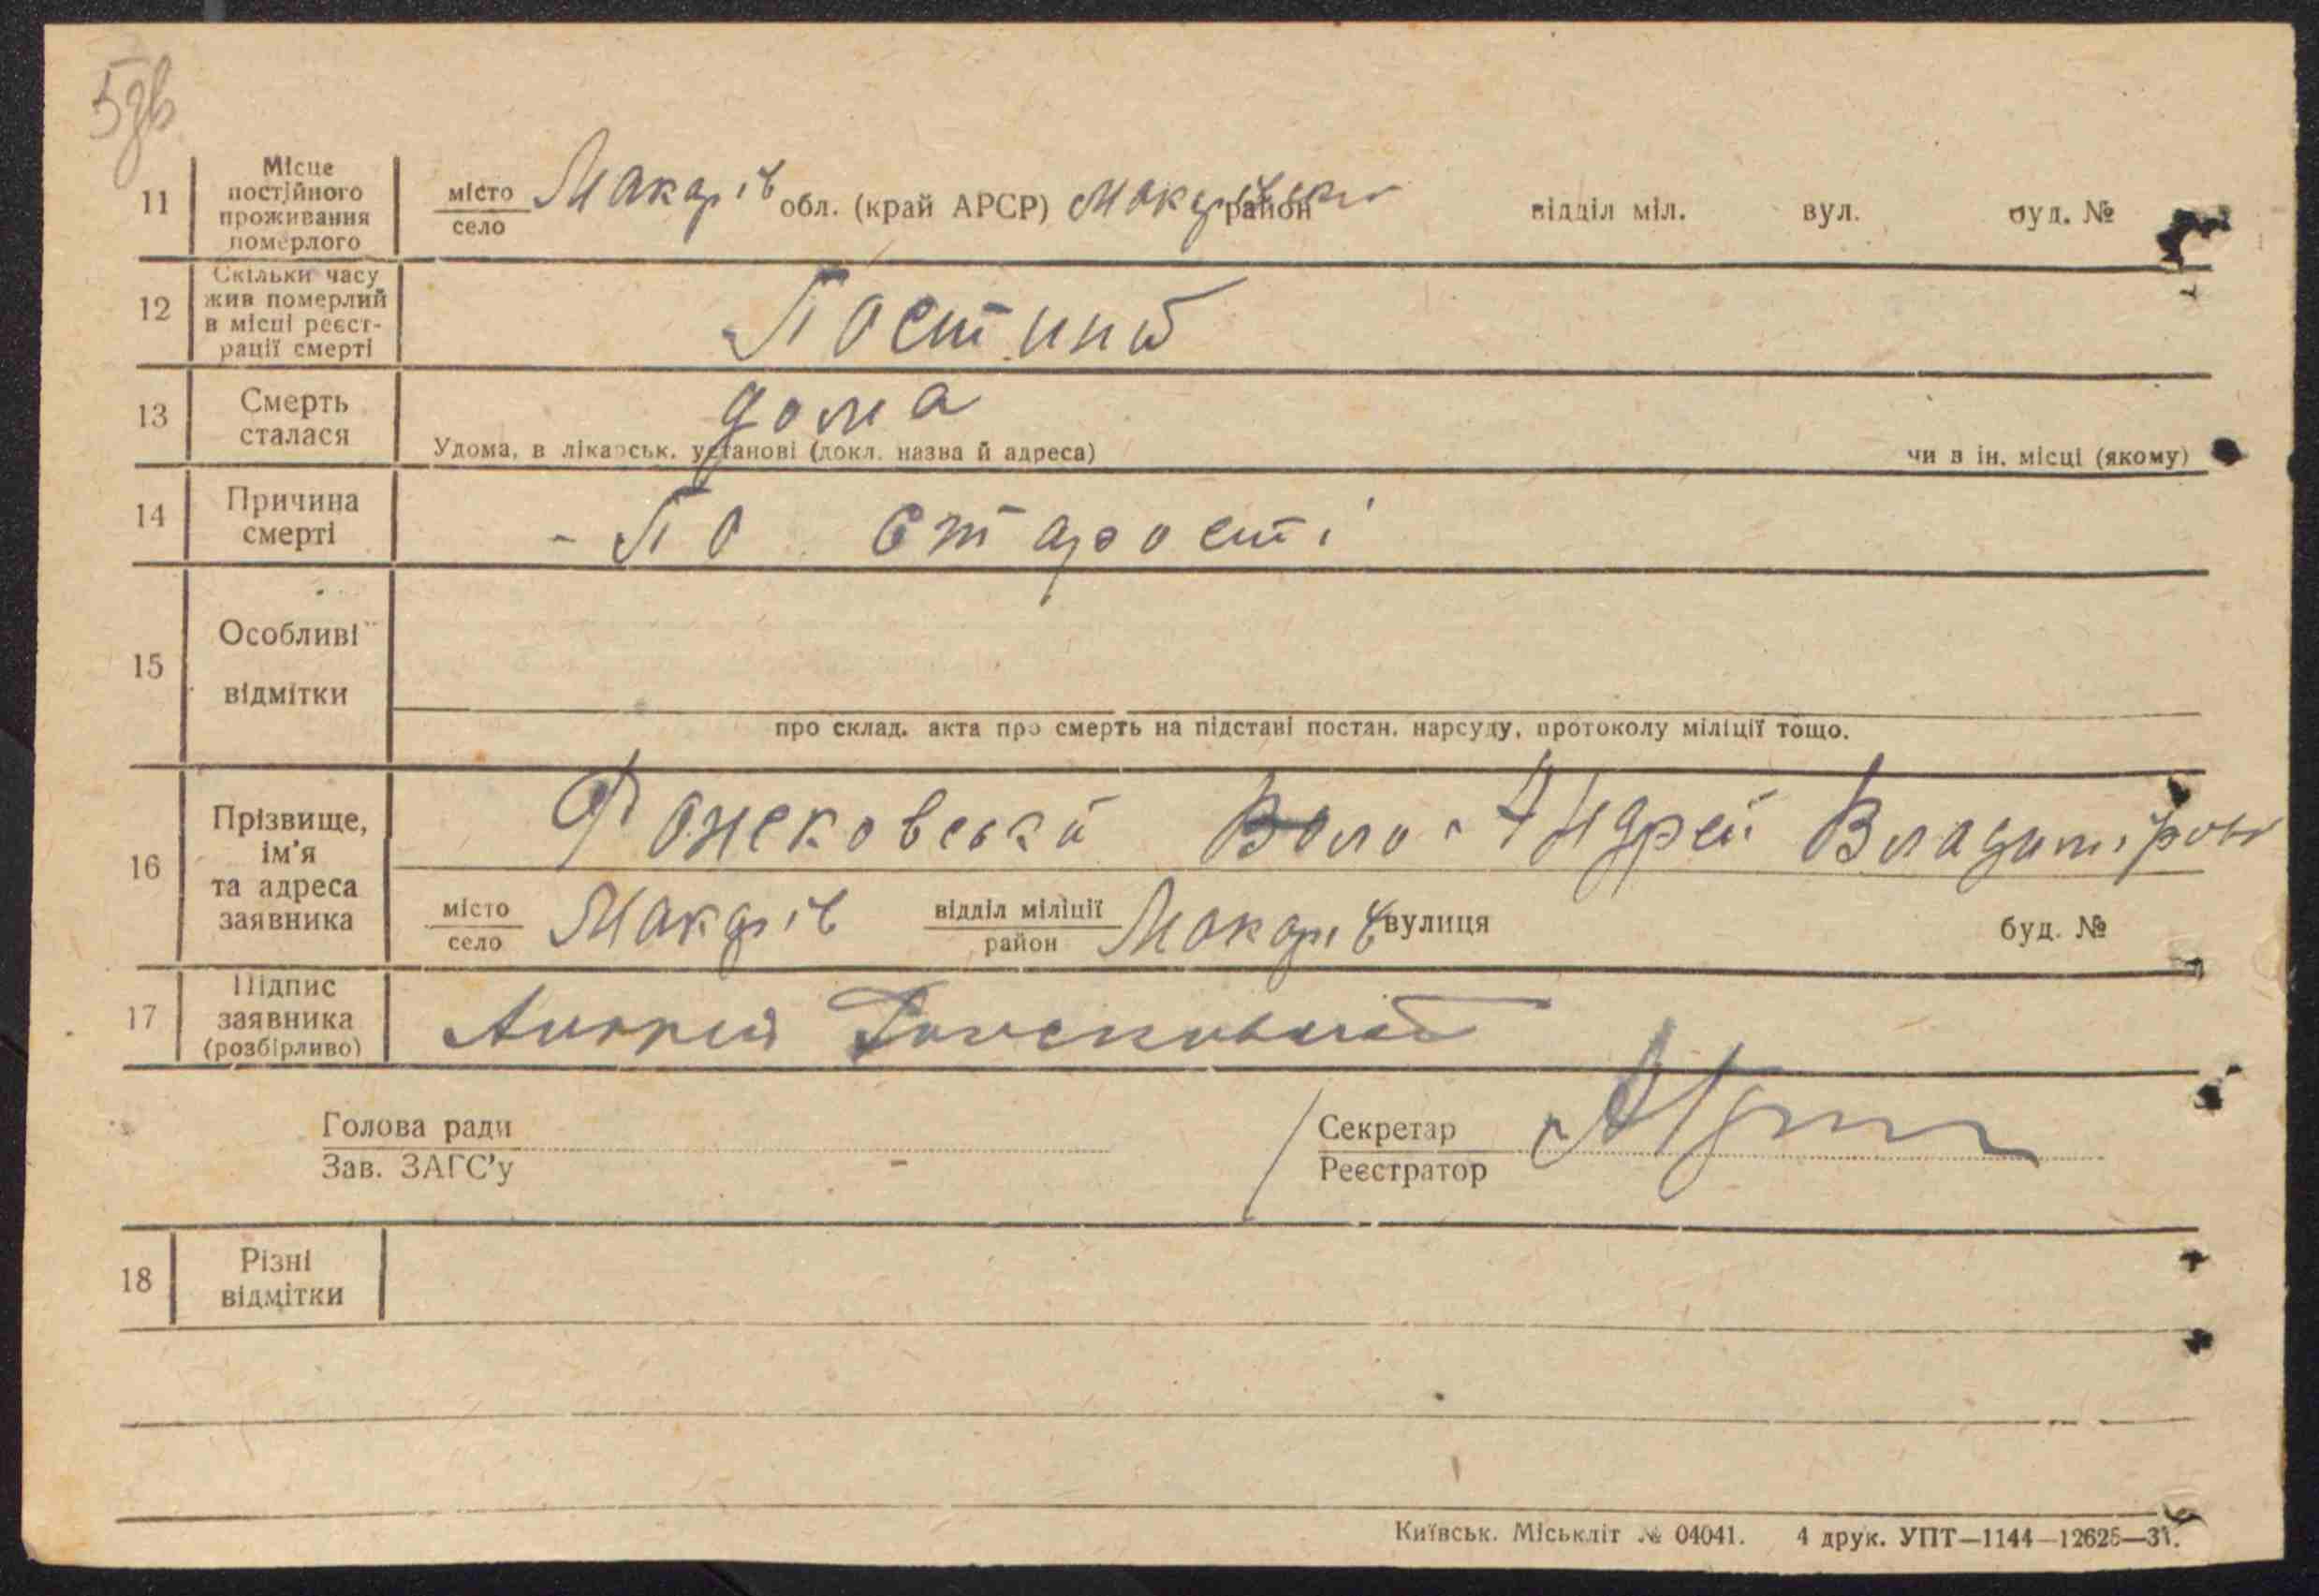 5зв
11 Місце постійного проживання померлого місто село Макарів обл. (край АРСР) Макарівськ район відділ міл. вул. буд. №
12 Скільки часу жив померлий в місці реєст-рації смерті Постиний
13 Смерть сталася дома
Удома, в лікарськ. установі (докл. назва й адреса) чи в ін. місці (якому)
14 Причина смерті - По старості
15 Особливі відмітки
про склад. акта про смерть на підставі постан. нарсуду, протоколу міліції тощо.
16 Прізвище, ім'я та адреса заявника Андрей Владиміров
місто село Макарів відділ міліції район Макарів вулиця буд. №
17 Підпис заявника (розбірливо) Андрей
Голова ради Секретар
Зав. ЗАГС'у Реєстратор
18 Різні відмітки
Київськ. Міськліт № 04041. 4 друк. УПТ—1144—12626—31.